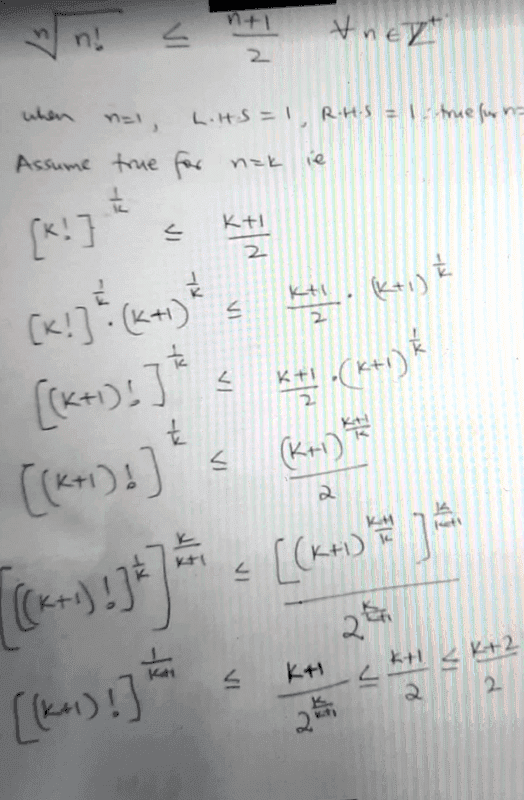 ⁿ√n! ≤ (n+1)/2 ∀ n ∈ ℤ⁺
when n=1, L.H.S = 1, R.H.S = 1 ∴ true for n=
Assume true for n=k ie
[k!]^(1/k) ≤ (k+1)/2
[k!]^(1/k) · (k+1)^(1/k) ≤ (k+1)/2 · (k+1)^(1/k)
[(k+1)!]^(1/k) ≤ (k+1)/2 · (k+1)^(1/k)
[(k+1)!]^(1/k) ≤ (k+1)^((k+1)/k) / 2
[[(k+1)!]^(1/k)]^(k/(k+1)) ≤ [(k+1)^((k+1)/k)]^(k/(k+1)) / 2^(k/(k+1))
[(k+1)!]^(1/(k+1)) ≤ (k+1)/2^(k/(k+1)) ≤ (k+1)/2 ≤ (k+2)/2